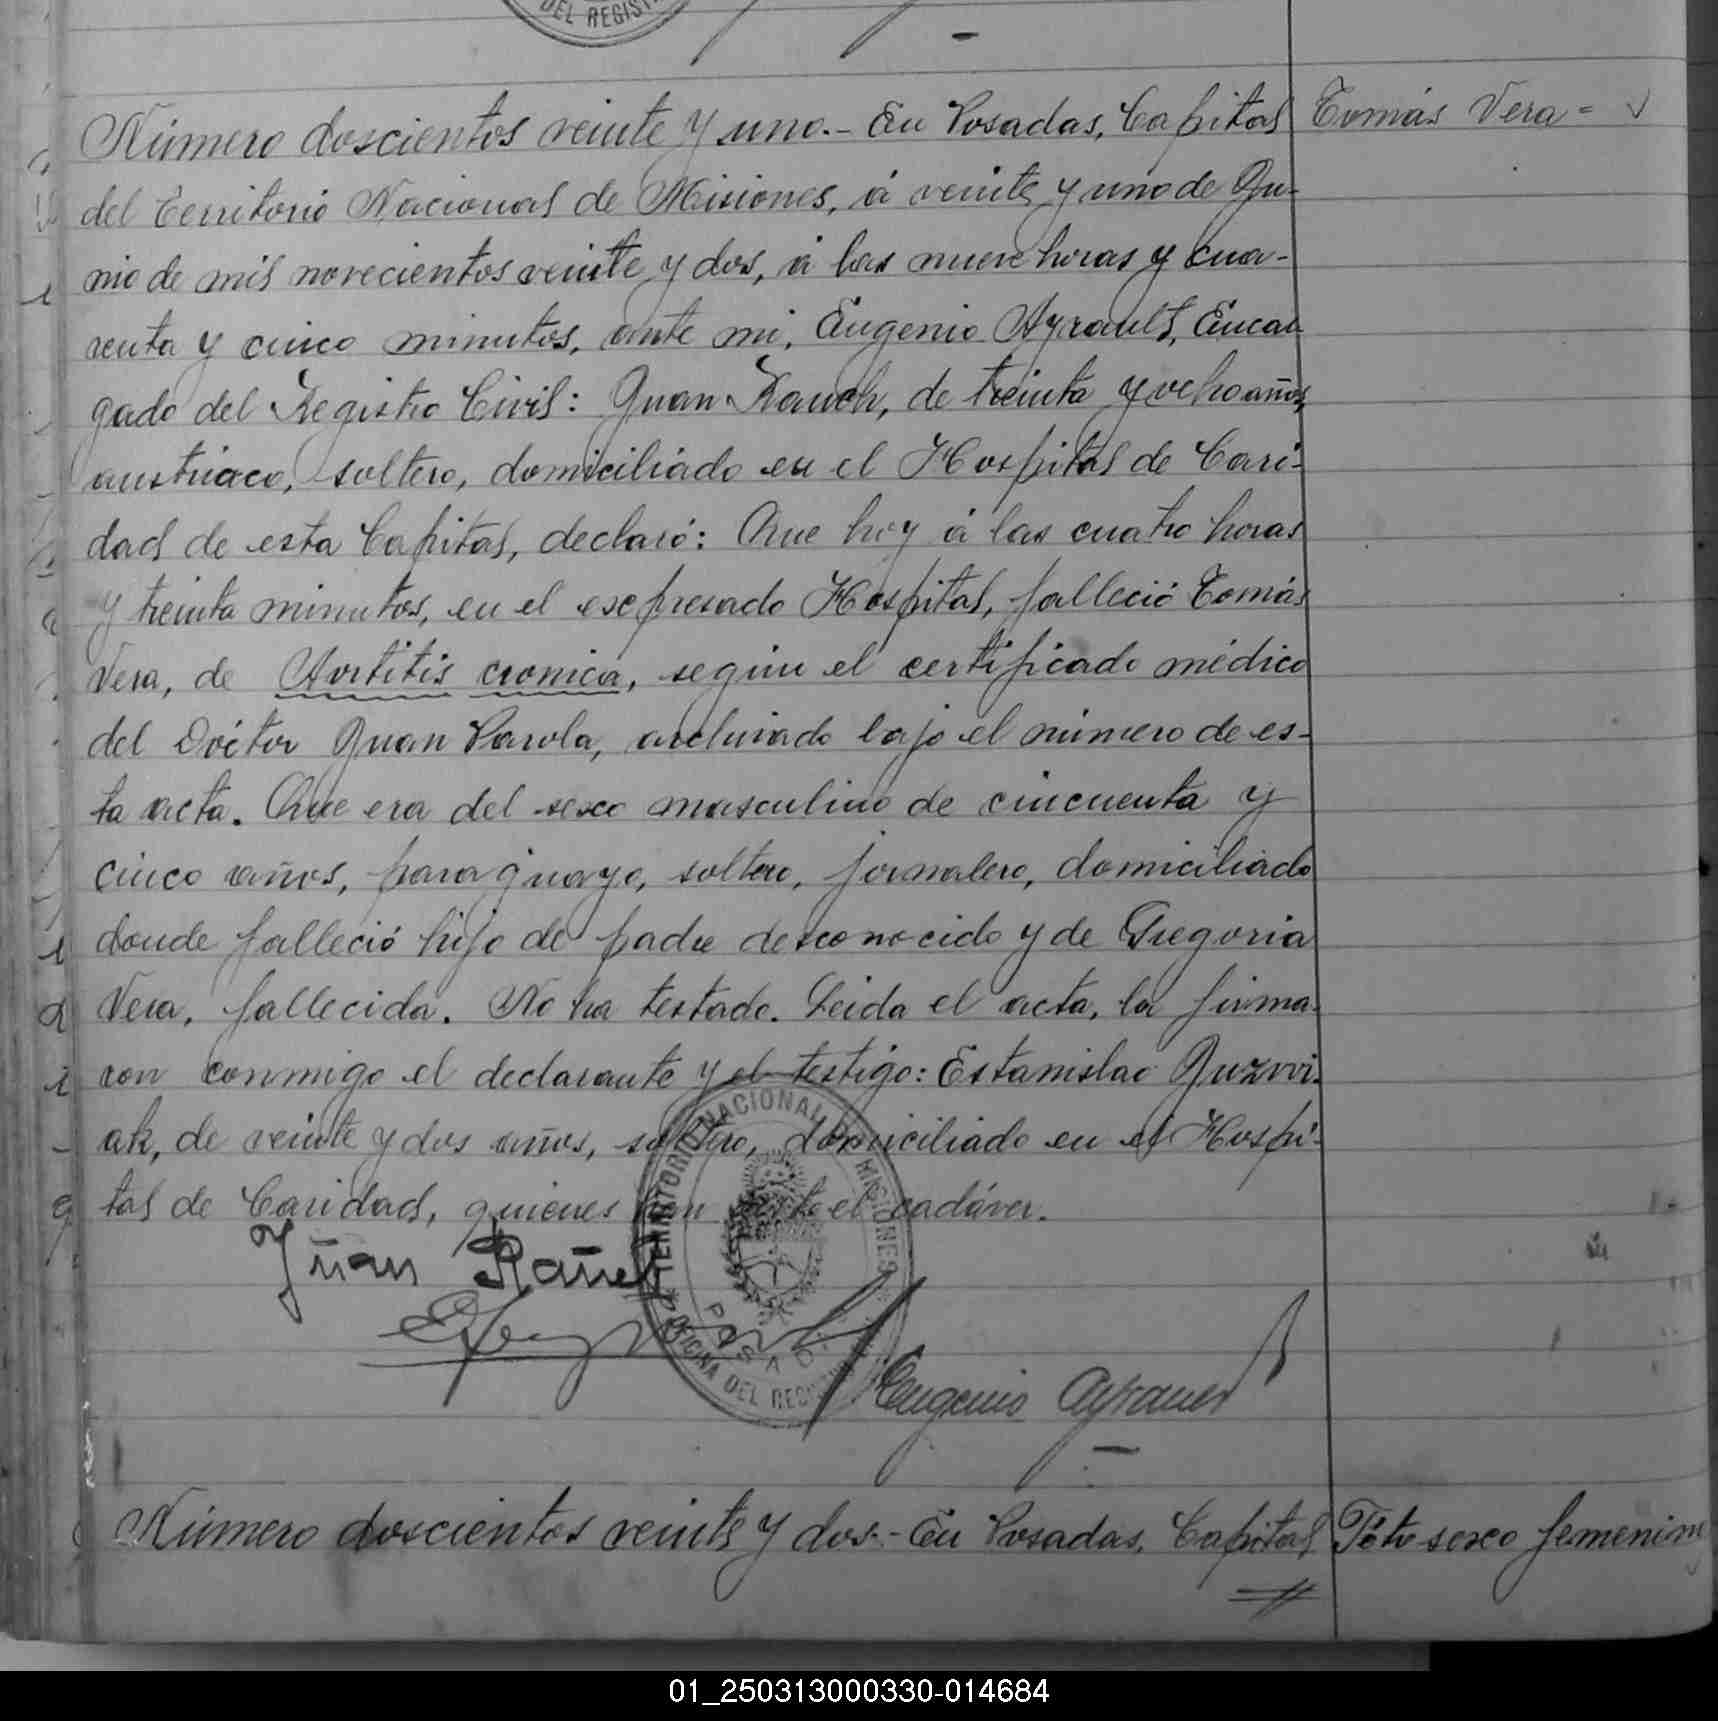 DEL REGIST
Número doscientos veinte y uno.- En Posadas, Capital
Tomás Vera =
del Territorio Nacional de Misiones, á veinte y uno de Ju-
nio de mil novecientos veinte y dos, á las nueve horas y cua-
renta y cinco minutos, ante mi, Eugenio Ayrault, Encar
gado del Registro Civil: Juan Rauch, de treinta y ocho años,
austriaco, soltero, domiciliado en el Hospital de Cari-
dad de esta Capital, declaró: Que hoy á las cuatro horas
y treinta minutos, en el expresado Hospital, falleció Tomás
Vera, de Aortitis cronica, según el certificado médico
del Dóctor Juan Parola, archivado bajo el número de es-
ta acta. Que era del sexo masculino de cincuenta y
cinco años, paraguayo, soltero, jornalero, domiciliado
donde falleció hijo de padre desconocido y de Gregoria
Vera, fallecida. No ha testado. Leida el acta, la firma-
ron conmigo el declarante y el testigo: Estanislao Juzwi-
ak, de veinte y dos años, soltero, domiciliado en el Hospi-
tal de Caridad, quienes han visto el cadáver.
TERRITORIO NACIONAL DE MISIONES
POSADAS
OFICINA DEL REGISTRO
Juan Rauch
Eugenio Ayrault
Número doscientos veinte y dos.- En Posadas, Capital
Féto sexo femenino
01_250313000330-014684